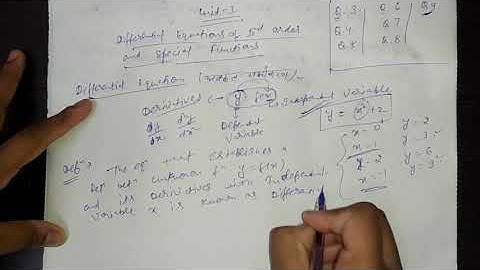 Unit-I
Differential Equations of Ist order
and Special Functions
Q.3.
Q.4
Q.5
Q.6
Q.7
Q.8
Q.9
Differential Equation
Derivatives → y = f(x) → Independent Variable
dy/dx d²y/dx²
Dependent
Variable
y = x²+2
x=0 y=2
x=1 y=3
y=2 y=6
x=-1 y=3
Def → The eqn which establishes a
unknown fn y=f(x)
and its Derivatives with Independent
Variable x is known as Differen